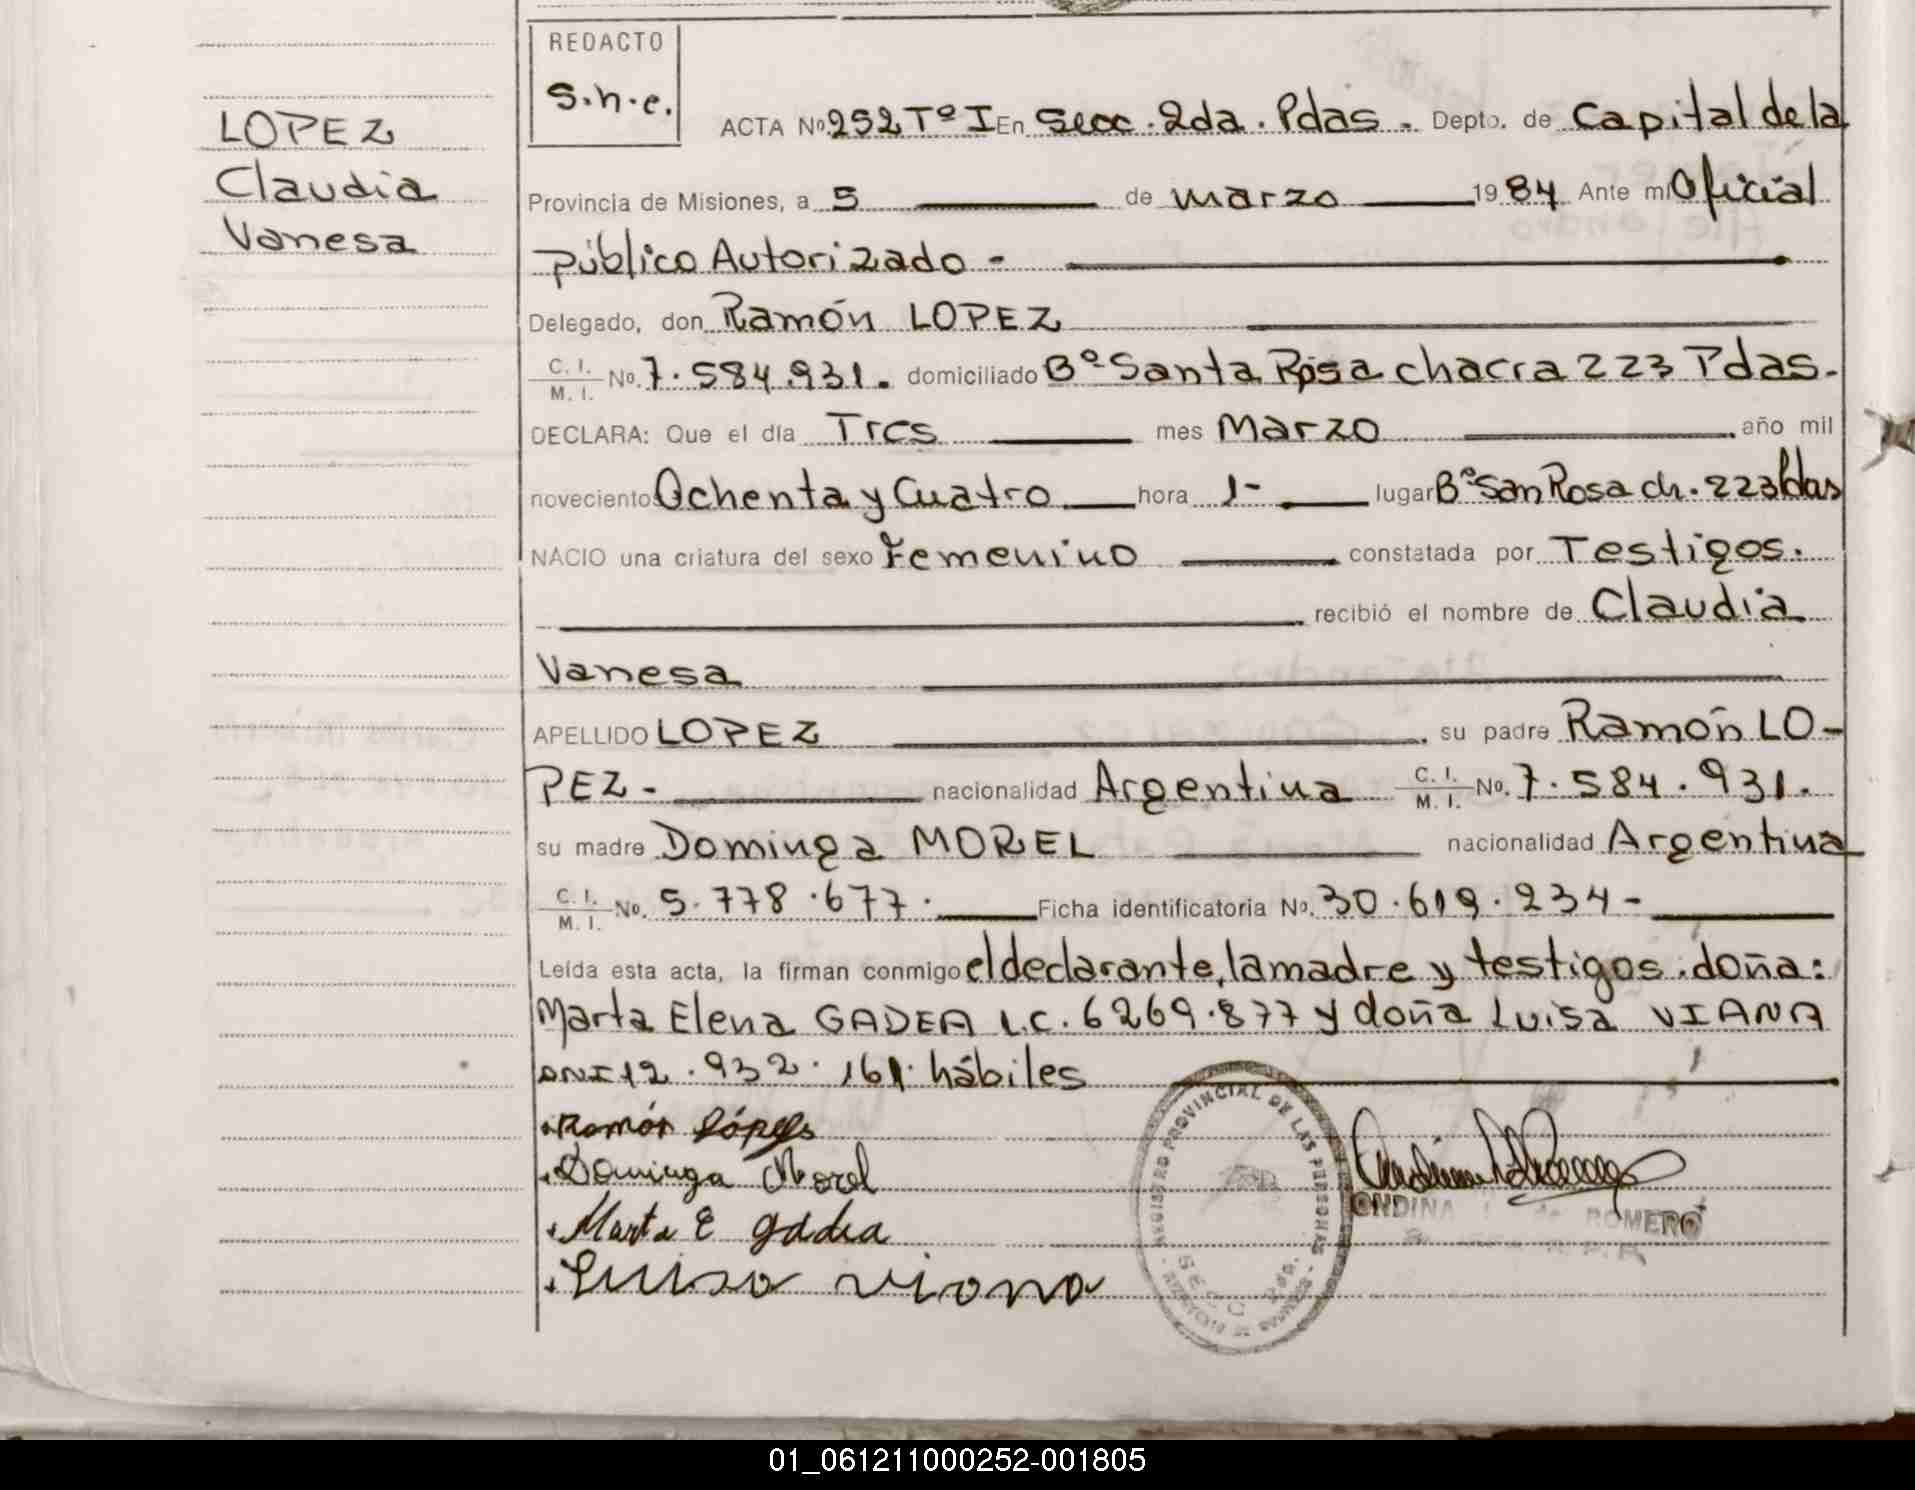 LOPEZ
Claudia
Vanesa
REDACTO
S.h.e.
ACTA Nº 252 Tº I En Secc. 2da. Pdas. Depto. de Capital de la
Provincia de Misiones, a 5 de marzo 1984 Ante mí Oficial
público Autorizado -
Delegado, don Ramón LOPEZ
C. I. / M. I. No. 7.584.931. domiciliado Bº Santa Rosa chacra 223 Pdas.
DECLARA: Que el día Tres mes Marzo año mil
novecientos Ochenta y Cuatro hora 1- lugar Bº San Rosa ch. 223 Pdas
NACIO una criatura del sexo Femenino constatada por Testigos.
recibió el nombre de Claudia
Vanesa
APELLIDO LOPEZ su padre Ramón LO-
PEZ- nacionalidad Argentina C. I. / M. I. No. 7.584.931.
su madre Dominga MOREL nacionalidad Argentina
C. I. / M. I. No. 5.778.677. Ficha identificatoria No. 30.619.234-
Leída esta acta, la firman conmigo el declarante, la madre y testigos. doña:
Marta Elena GADEA L.C. 6269.877 y doña Luisa VIANA
DNI 12.932.161. hábiles
Ramón López
Dominga Morel
Marta E gadea
Luisa viana
REGISTRO PROVINCIAL DE LAS PERSONAS
ONDINA de ROMERO
01_061211000252-001805